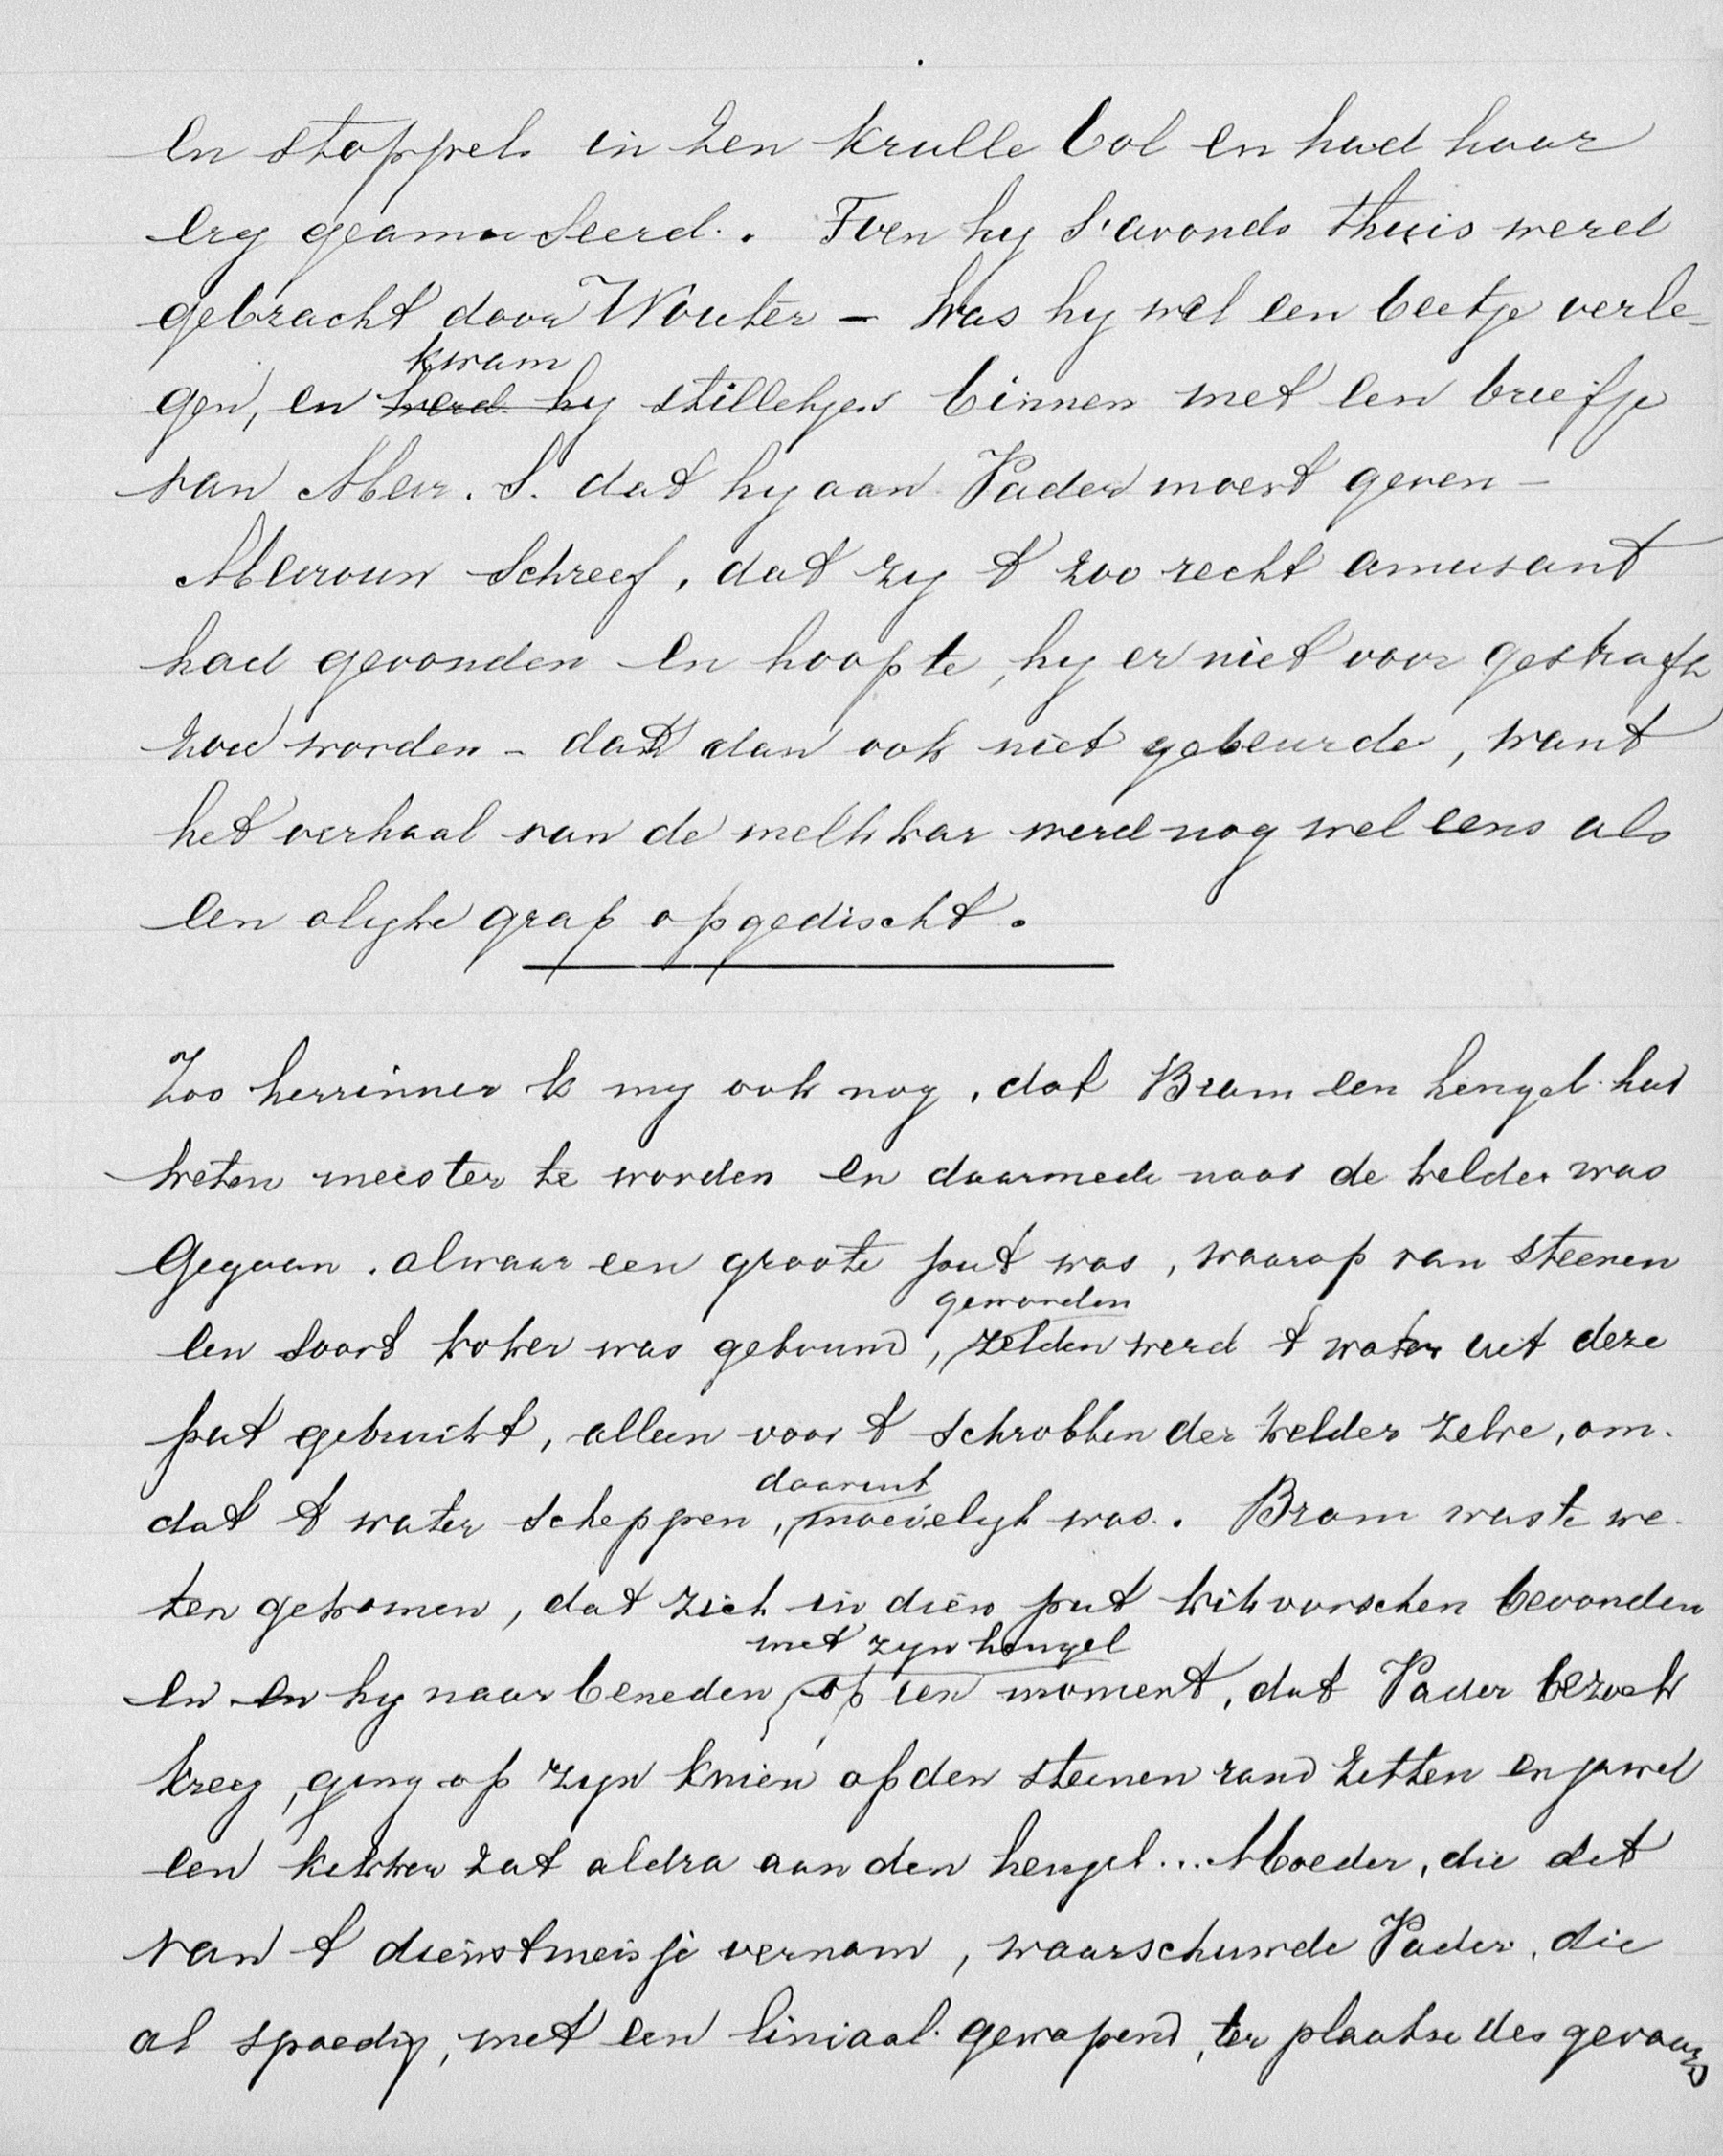 en stoppels in zen krulle bol en had haar
erg geamuseerd. Toen hy s'avonds thuis werd
gebracht door Wouter – was hy wel een beetje verle-
kwam
gen, en werd hy stilletjes binnen met een briefje
van Mevr. S. dat hy aan Vader moest geven –
Mevrouw Schreef, dat zy 't zoo recht amusant
had gevonden en hoopte, hy er niet voor gestraft
zou worden – dat dan ook niet gebeurde, want
het verhaal van de melkkar werd nog wel eens als
een olyke grap opgedischt.
Zoo herrinner k my ook nog, dat Bram een hengel had
weten meester te worden en daarmede naar de kelder was
Gegaan. alwaar een groote put was, waarop van steenen
geworden
een soort koker was gebouwd, zelden werd 't water uit deze
put gebruikt, alleen voor 't schrobben der kelder zelve, om-
daaruit
dat 't water scheppen, moeielyk was. Bram was te we-
ten gekomen, dat zich in dien put kikvorschen bevonden
met zyn hengel
en en hy naar beneden, op een moment, dat Vader bezoek
kreeg, ging op zyn knien op den steenen rand zetten en jawel
een kikker zat aldra aan den hengel... Moeder, die dit
van 't dienstmeisje vernam, waarschuwde Vader, die
al spoedig, met een liniaal gewapend, ter plaatse des gevaars